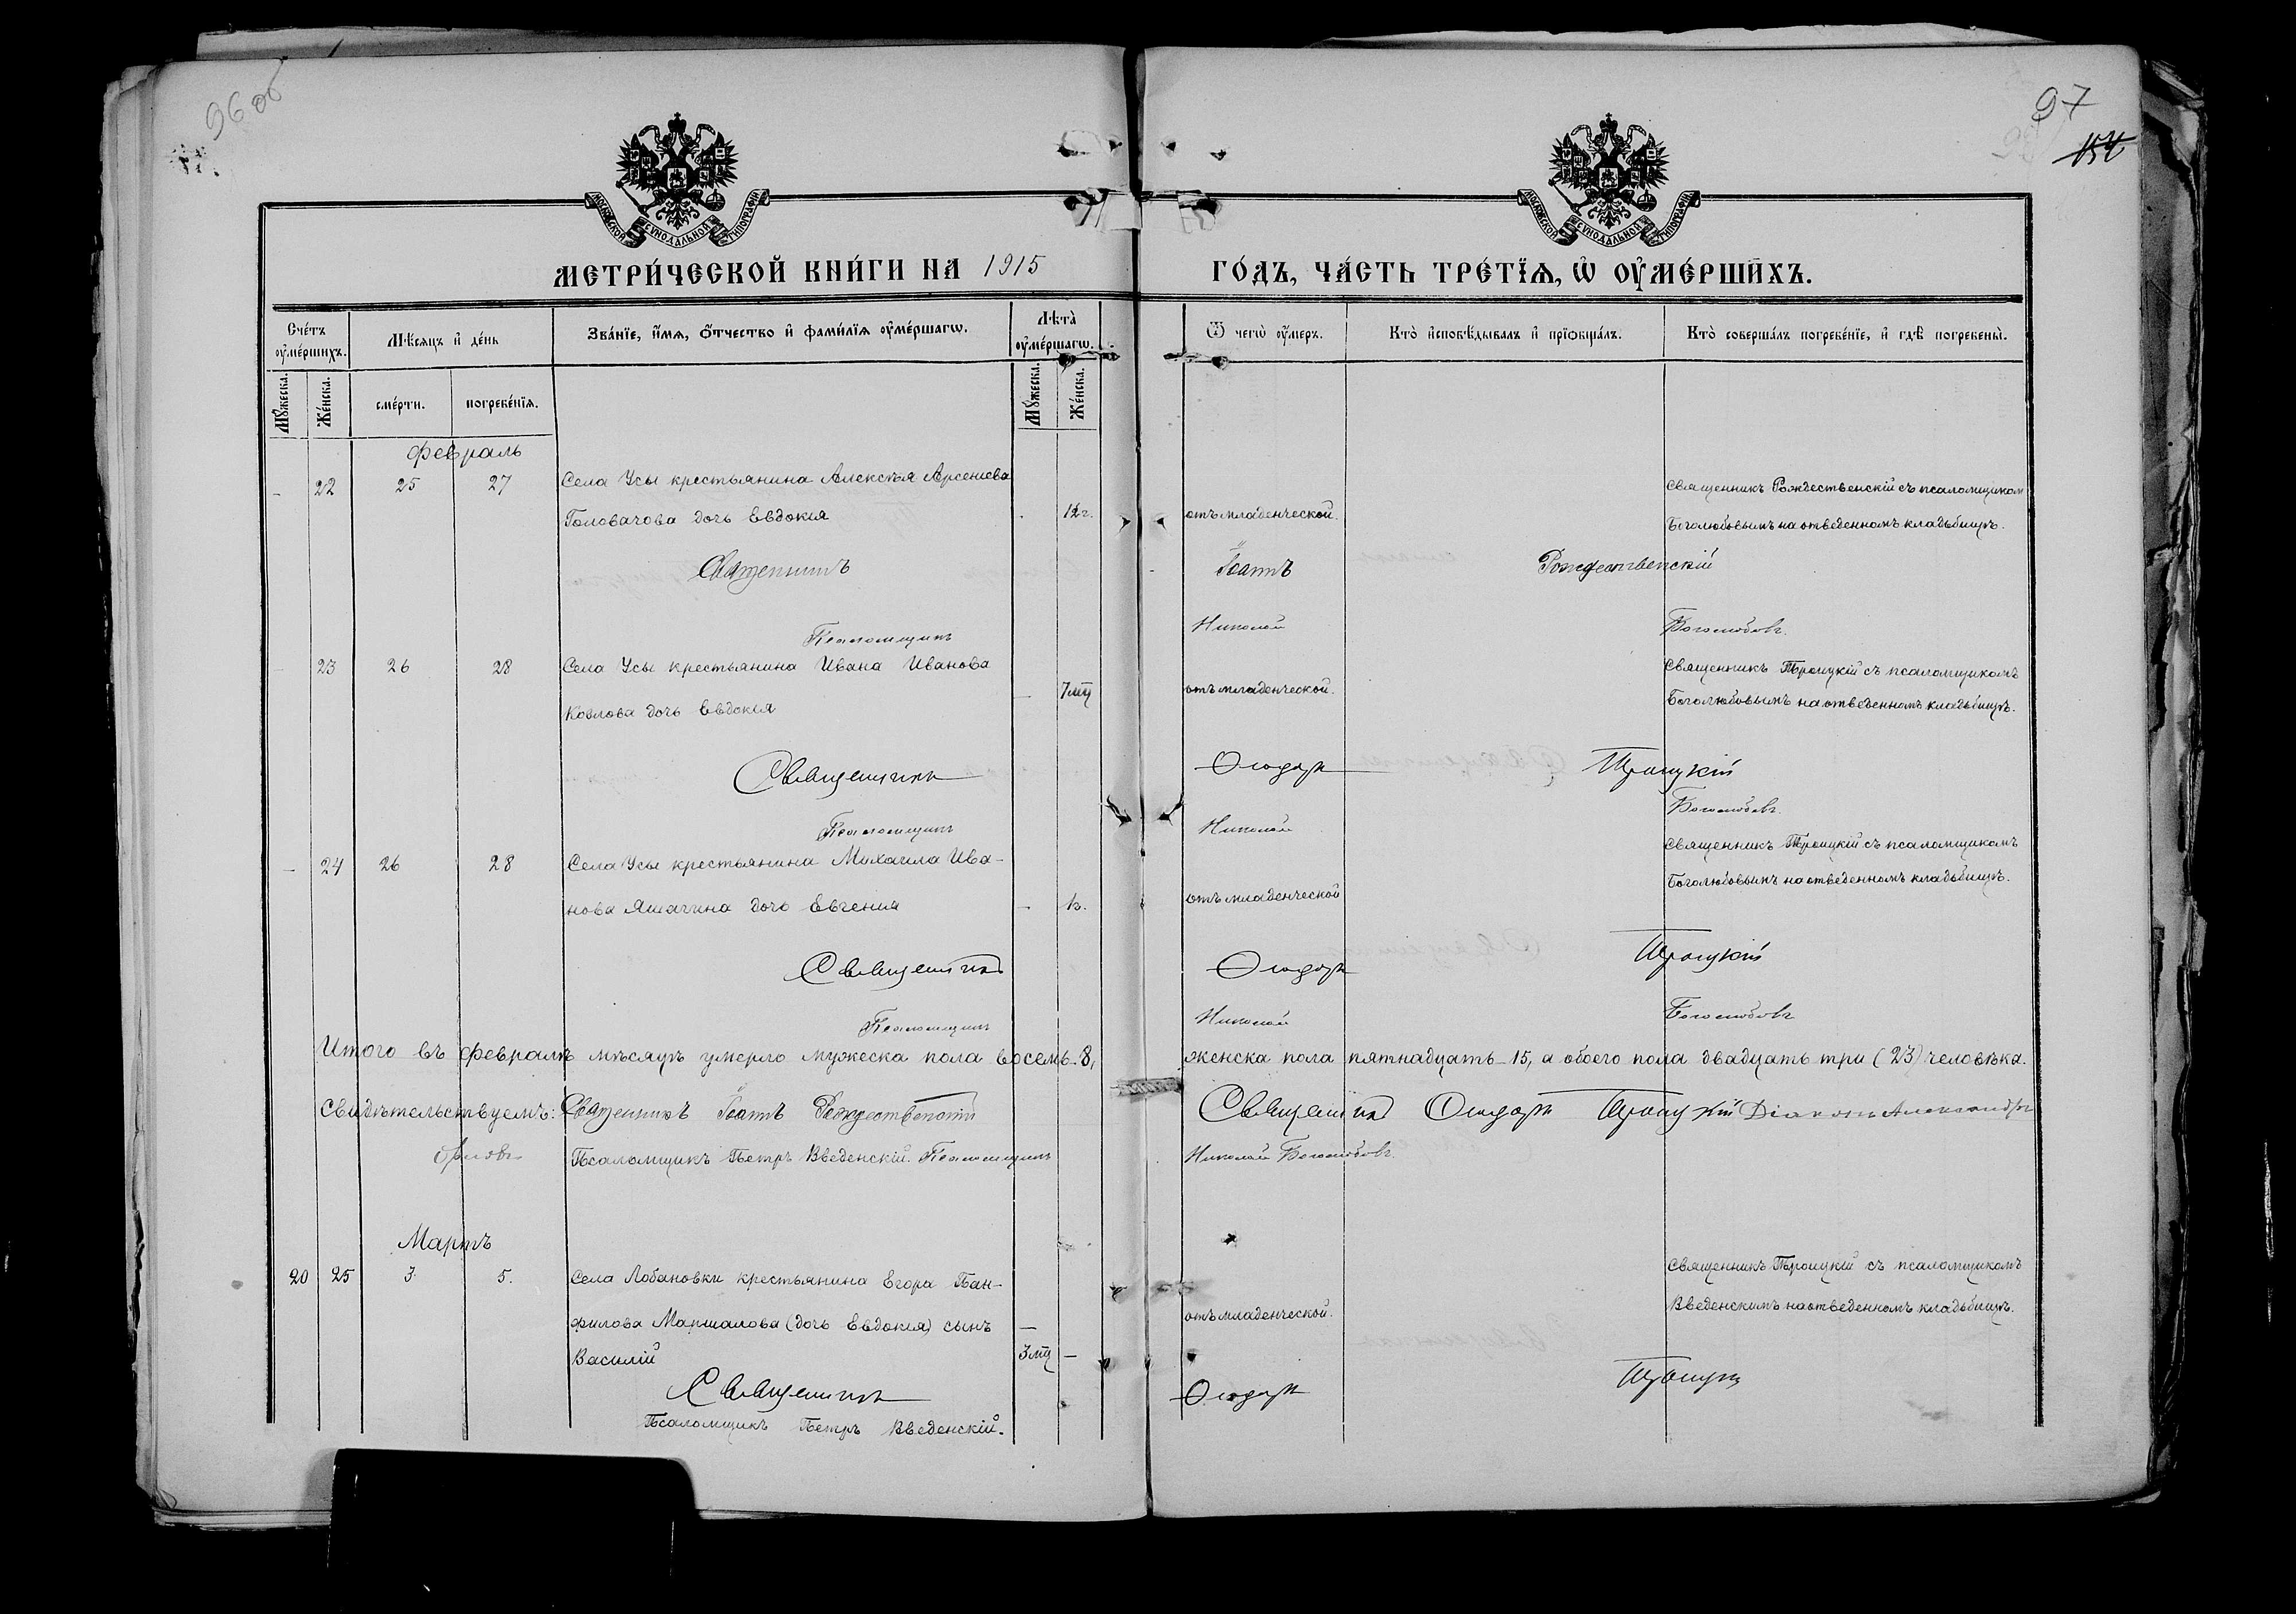 96 об
97
154
МОСКОВСКОЙ СѴНОДАЛЬНОЙ ТИПОГРАФІИ
МОСКОВСКОЙ СѴНОДАЛЬНОЙ ТИПОГРАФІИ
МЕТРИ́ЧЕСКОЙ КНИ́ГИ НА 1915 ГО́ДЪ, ЧА́СТЬ ТРЕ́ТЇѦ, Ѡ҆ ОУ҆МЕ́РШИХЪ.
Сче́тъ оу҆ме́ршихъ.
Мѣ́сяцъ и҆ де́нь
Зва́нїе, и҆́мя, ѻ҆́тчество и҆ фами́лїя оу҆ме́ршагѡ.
Лѣта̀ оу҆ме́ршагѡ.
Ѿ чегѡ̀ оу҆́меръ.
Кто̀ и҆сповѣ́дывалъ и҆ прїѡбща́лъ.
Кто̀ соверша́лъ погребе́нїе, и҆ гдѣ̀ погребены̀.
Мꙋ́жеска.
Же́нска.
сме́рти.
погребе́нїя.
Мꙋ́жеска.
Же́нска.
Февраль
- 22 25 27 Села Усы крестьянина Алексѣя Арсеніева
Головачова дочь Евдокія
1½г. отъ младенческой.
Священникъ Рождественскій съ псаломщиком
Боголюбовымъ на отведенномъ кладбищѣ.
Священникъ Іоаннъ Рождественскій
Псаломщикъ Николай Боголюбовъ.
- 23 26 28 Села Усы крестьянина Ивана Иванова
Козлова дочь Евдокія
— 7 мц отъ младенческой.
Священникъ Троицкій съ псаломщикомъ
Боголюбовымъ на отведенномъ кладбищѣ.
Священникъ Ѳеодоръ Троицкій
Псаломщикъ Николай Боголюбовъ.
- 24 26 28 Села Усы крестьянина Михаила Ива-
нова Яшагина дочь Евгенія
— ½. отъ младенческой
Священникъ Троицкій съ псаломщикомъ
Боголюбовымъ на отведенномъ кладбищѣ.
Священникъ Ѳеодоръ Троицкій
Псаломщикъ Николай Боголюбовъ
Итого въ февралѣ мѣсяцѣ умерло мужеска пола восемь-8, женска пола пятнадцать-15, а обоего пола двадцать три (23) человѣка.
Свидѣтельствуемъ: Священникъ Іоаннъ Рождественскій Священникъ Ѳеодоръ Троицкій Діаконъ Александръ
Орловъ Псаломщикъ Петръ Введенскій. Псаломщикъ Николай Боголюбовъ.
Мартъ
20 25 3 5. Села Лобановки крестьянина Егора Пан-
филова Маршалова (дочь Евдокія) сынъ —
Василій 3 мц —
отъ младенческой.
Священникъ Троицкій съ псаломщикомъ
Введенскимъ на отведенномъ кладбищѣ.
Священникъ Ѳеодоръ Троицкій
Псаломщикъ Петръ Введенскій.